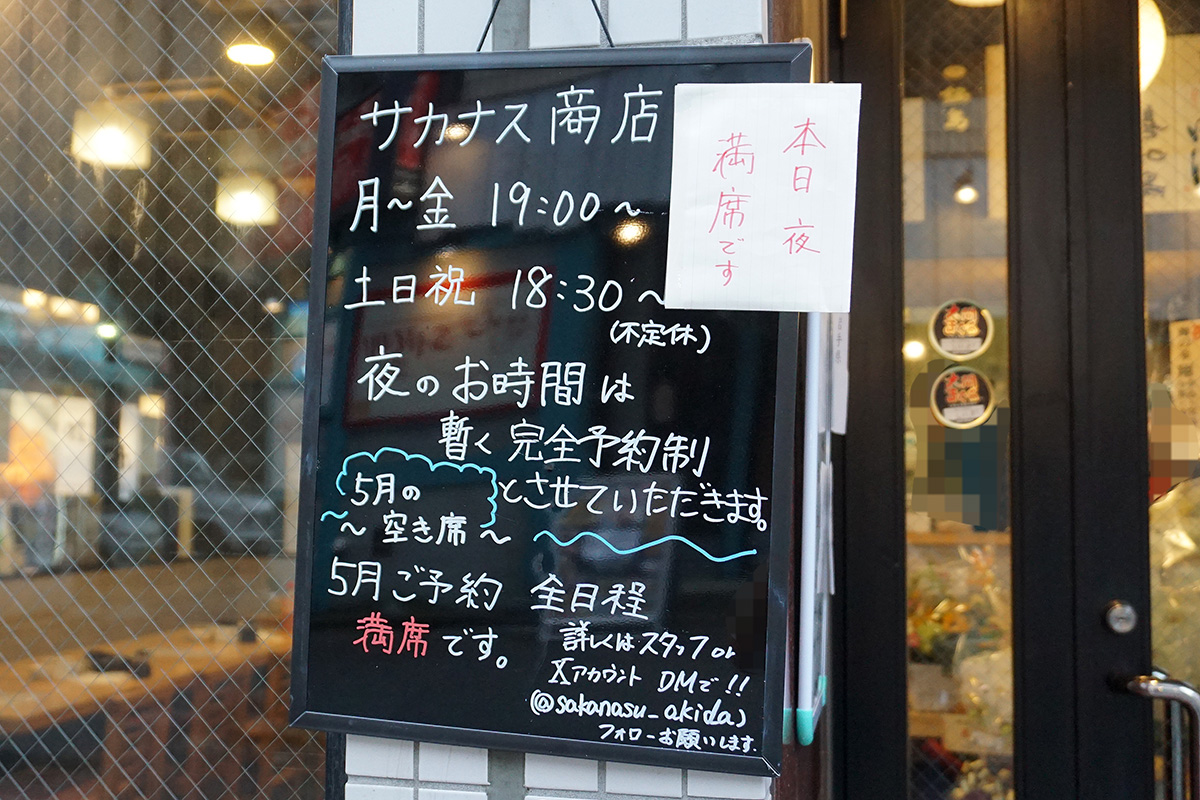 サカナス商店
月~金 19:00~
土日祝 18:30~
(不定休)
夜のお時間は
暫く完全予約制
とさせていただきます。
5月の
~空き席~
5月ご予約 全日程
満席です。
詳しくはスタッフor
Xアカウント DMで!!
(@sakanasu_akida)
フォローお願いします.
本日夜
満席です